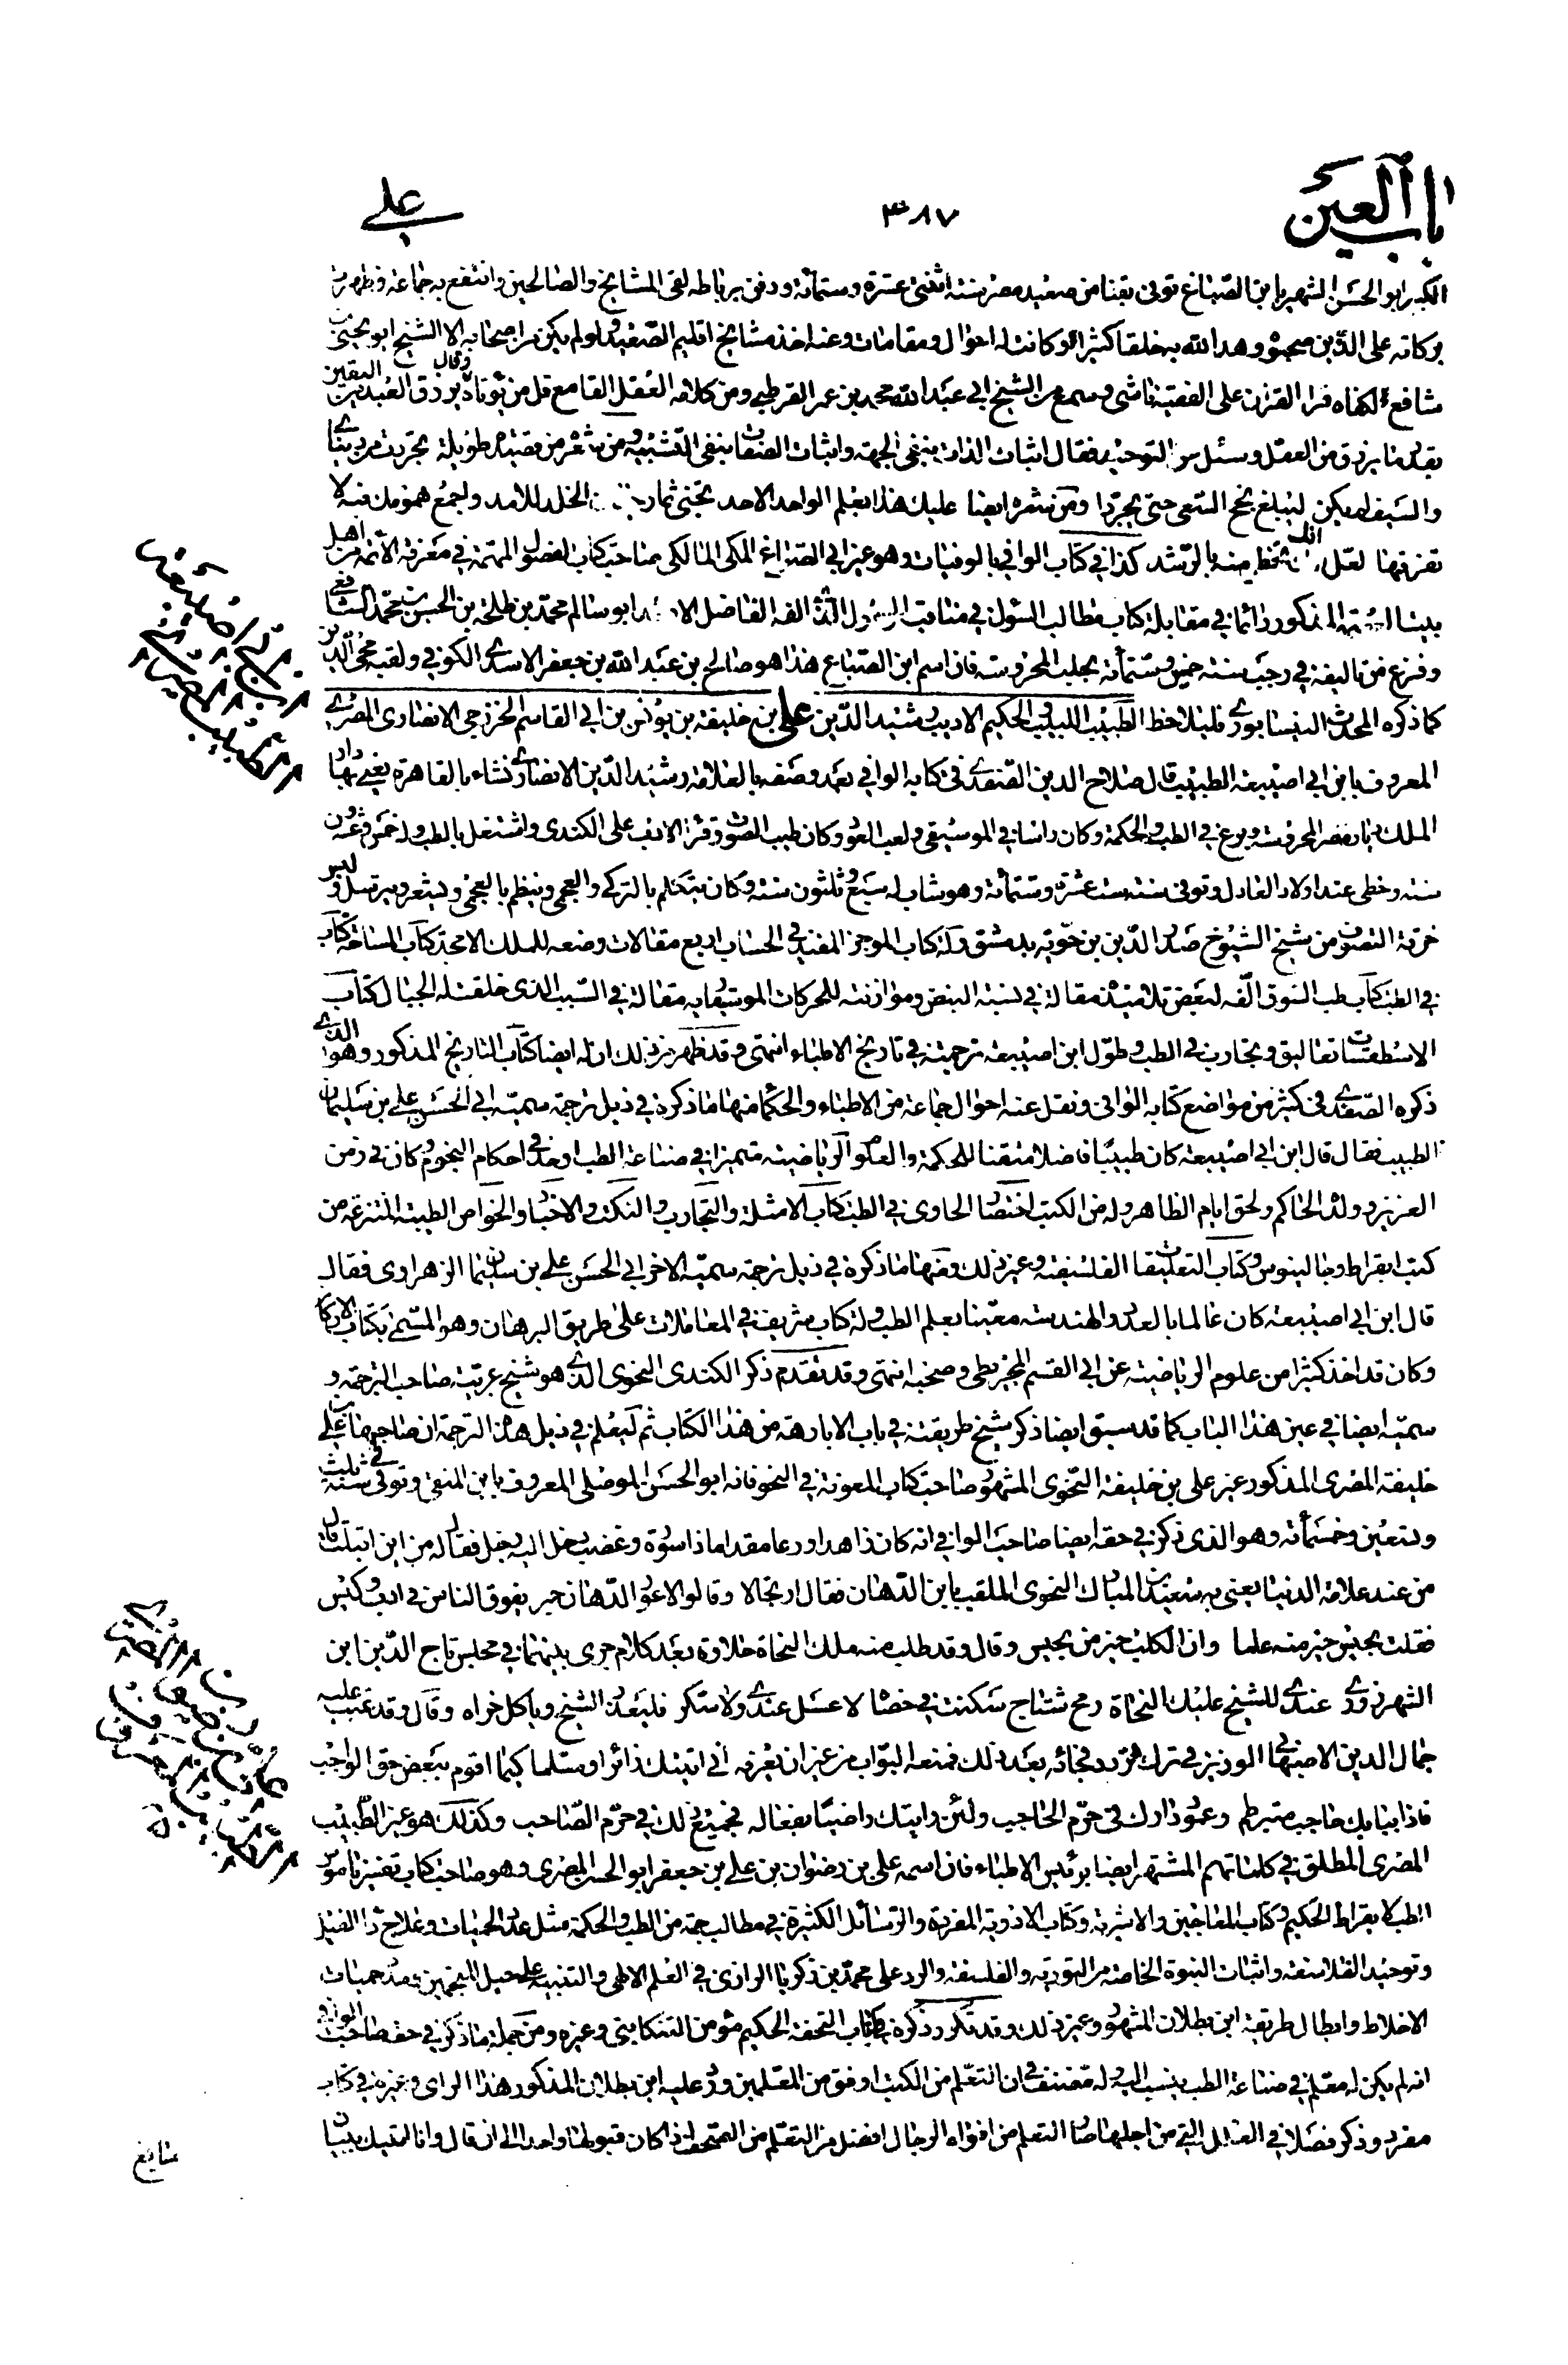 باب العين
٣٨٧
علي
الكبير ابو الحسن الشهير بابن الصباغ توفى بقنا من صعيد مصر سنة اثنتى عشرة وستمائة ودفن برباطه لقى المشايخ والصالحين وانتفع به جماعة وظهرت
بركاته على الذين صحبوه وهدا الله به خلقا كثيرا وكانت له احوال ومقامات وعنه اخذ مشايخ اقليم الصعيد ولو لم يكن من اصحابه الا الشيخ ابو يحيى بن
شافع لكفاه قرا القران على الفقيه ناشى وسمع من الشيخ ابي عبد الله محمد بن عمر القرطبي ومن كلامه العقل القامع قل من يؤتاه وقال يرزق العبد من اليقين
بقدر ما يرزق من العقل وسئل عن التوحيد فقال اثبات الذات بنفى الجهة واثبات الصفات بنفى التشبيه ومن شعره من قصيدة طويلة تجردت من دنياى
والسيف لم يكن ليبلغ نجح السعى حتى يجردا ومن شعره ايضا عليك هذا بعلم الواحد الاحد تجنى ثمار الخلد للامد واجمع همومك فيه لا
تفرقها لعل انك تحظى منه بالرشد كذا في كتاب الوافي بالوفيات وهو غير ابي الصباغ المكى المالكى صاحب كتاب الفصول المهمة في معرفة الائمة من اهل
بيت المذكور دائما في مقابلة كتاب مطالب السئول في مناقب ال الرسول الذى الفه الفاضل ابو سالم محمد بن طلحة بن الحسن بن محمد الشافعي
وفرغ من تاليفه في رجب سنة خمس وستمأة بحلب المحروسة فان اسم ابن الصباغ هذا هو صالح بن عبد الله بن جعفر الاسدى الكوفي ولقبه محى الدين
كما ذكره المحدث النيسابورى فليلاحظ الطبيب اللبيب والحكيم الاديب رشيد الدين علي بن خليفة بن يونس بن ابي القاسم الخزرجي الانصارى المصرى
المعروف بابن ابي اصيبعة الطبيب قال صلاح الدين الصفدى في كتابه الوافي بعد وصفه بالعلامة رشيد الدين الانصارى نشاء بالقاهرة يعني بها دار
الملك بارض مصر المحروسة وبرع في الطب والحكمة وكان راسا في الموسيقى ولعب العود وكان طيب الصوت وقرا الادب على الكندى واشتغل بالطب وله خمس وعشرون
سنة وحظى عند اولاد العادل وتوفى سنة ست عشرة وستمأة وهو شاب له سبع وثلثون سنة وكان يتكلم بالتركى والعجمى وينظم بالعجمى ويشعر ويترسل ولبس
خرقة التصوف من شيخ الشيوخ صدر الدين بن حمويه بدمشق وله كتاب الموجز المفيد في الحساب اربع مقالات وضعه للملك الامجد كتاب المساحة كتاب
في الطب كتاب طب السوق الفه لبعض تلاميذه مقالة في نسبة النبض وموازنته للحركات الموسيقارية مقالة في السبب الذى خلقت له الجبال كتاب
الاسطقسات تعاليق وتجارب في الطب وطول ابن اصيبعة ترجمته في تاريخ الاطباء انتهى وقد ظهر من ذلك ان له ايضا كتاب التاريخ المذكور وهو الذى
ذكره الصفدى في كثير من مواضع كتابه الوافي ونقل عنه احوال جماعة من الاطباء والحكما منها ما ذكره في ذيل ترجمة سميه ابي الحسن علي بن سليمان
الطبيب فقال قال ابن ابي اصيبعة كان طبيبا فاضلا متقنا للحكمة والعلوم الرياضية متميزا في صناعة الطب اوحدا في احكام النجوم كان في زمن
العزيز وولده الحاكم ولحق ايام الظاهر وله من الكتب اختصار الحاوى في الطب كتاب الامثلة والتجارب والنكت والاخبار والخواص الطبية المنتزعة من
كتب ابقراط وجالينوس وكتاب التعليقات الفلسفية وغير ذلك ومنها ما ذكره في ذيل ترجمة سميه الاخر ابي الحسن علي بن سليمان الزهراوى فقال
قال ابن ابي اصيبعة كان عالما بالعدد والهندسة معتينا بعلم الطب وله كتاب شريف في المعاملات على طريق البرهان وهو المسمى بكتاب الاركان
وكان قد اخذ كثيرا من علوم الرياضية عن ابي القسم المجريطى وصحبه انتهى وقد تقدم ذكر الكندى النحوى الذى هو شيخ عربية صاحب الترجمة و
سميه ايضا في عين هذا الباب كما قد سبق ايضا ذكر شيخ طريقته في باب الاباره من هذا الكتاب ثم ليعلم في ذيل هذه الترجمة ان صاحبها علي بن
خليفة المصرى المذكور غير علي بن خليفة النحوى المشهور صاحب كتاب المعونة في النحو فانه ابو الحسن الموصلى المعروف بابن المنقى وتوفى في سنة ثلث
وتسعين وخمسمأة وهو الذى ذكر في حقه ايضا صاحب الوافي انه كان زاهدا ورعا مقداما ذا سوة وغضب دخل اليه رجل فقال له من اين اتيت قال
من عند علامة الدنيا يعنى به سعيد بن المبارك النحوى الملقب بابن الدهان فقال ارتجالا وقالوا الاعور الدهان حبر يفوق الناس في ادب وكيس
فقلت بحيس خير منه علما وان الكلب خير من بحيس وقال وقد طلب منه ملك النحاة حلاوة بعد كلام جرى بينهما في مجلس تاج الدين ابن
الشهرزورى عندى للشيخ عليك النحاة ريح شتاج سكنت في خصا لا عسل عندى ولا سكر فليعذر الشيخ وياكل خراه وقال وقد عتب عليه
جمال الدين الاصبهاني الوزير في ترك تردده فجائه بعد ذلك فمنعه البواب من غير ان يعرفه اني اتيتك زائرا ومسلما كيما اقوم ببعض حق الواجب
فاذا ببابك حاجب متبرطم وعمود دارك في حرم الحاجب ولئن رايتك راضيا بفعاله فجميع ذلك في حرم الصاحب وكذلك هو غير الطبيب
المصرى المطلق في كلماتهم المشتهر ايضا برئيس الاطباء فان اسمه علي بن رضوان بن علي بن جعفر ابو الحسن المصرى وهو صاحب كتاب تفسير ناموس
الطب لابقراط الحكيم وكتاب المعاجين والاشربة وكتاب الادوية المفردة والرسائل الكثيرة في مطالب جمة من الطب والحكمة مثل عدد الحميات وعلاج داء الفيل
وتوحيد الفلاسفة واثبات النبوة الخاصة من التورية والفلسفة والرد على محمد بن زكريا الرازى في العلم الالهى والتنبيه على حيل المنجمين وعدد حميات
الاخلاط وابطال طريقة ابن بطلان المشهور وغير ذلك وقد تكرر ذكره في كتاب التحفة الحكيم مؤمن التنكابنى وغيره ومن جملة ما ذكر في حقه صاحب الوافي
انه لم يكن له معلم في صناعة الطب ينسب اليه وله مصنف في ان التعلم من الكتب اوفق من المعلمين ورد عليه ابن بطلان المذكور هذا الراى وغيره في كتاب
مفرد وذكر فصلا في العلل التى من اجلها صار التعلم من افواه الرجال افضل من التعلم من الصحف اذا كان قبولهما واحدا الى ان قال وانا اتيك ببيان